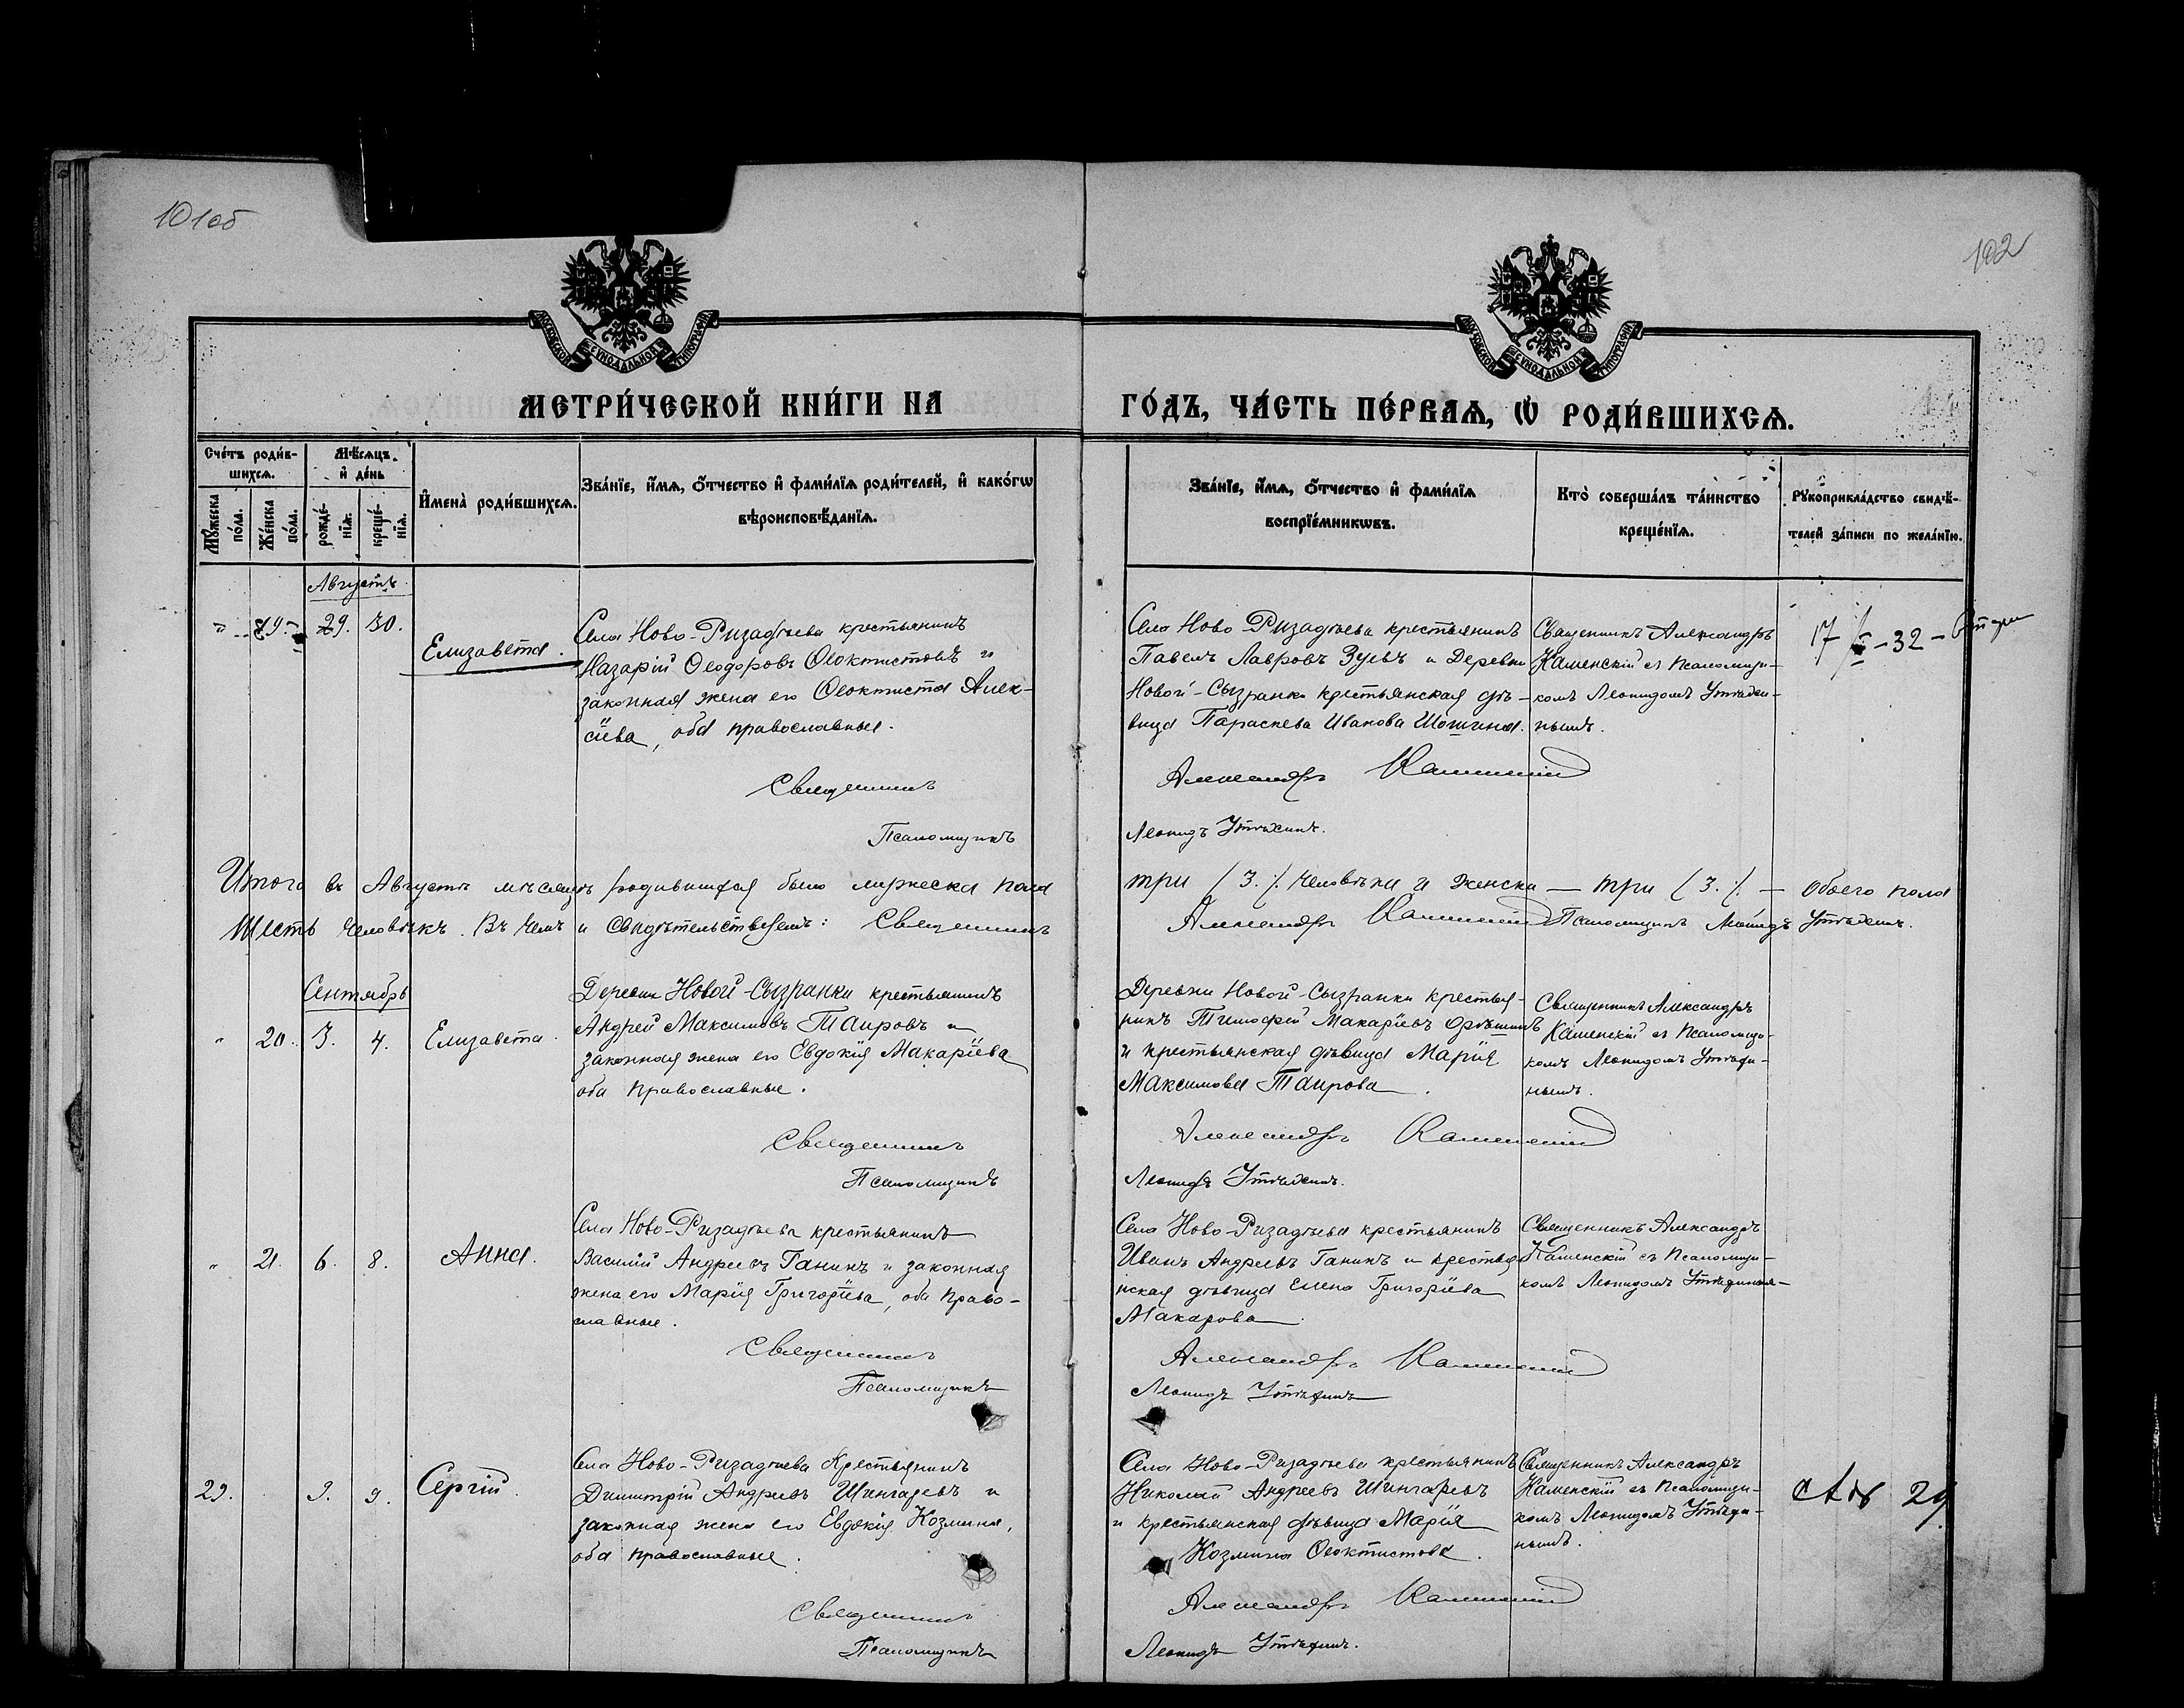 101об
102
МОСКОВСКОЙ СѴНОДАЛЬНОЙ ТИПОГРАФІИ
МОСКОВСКОЙ СѴНОДАЛЬНОЙ ТИПОГРАФІИ
МЕТРИ́ЧЕСКОЙ КНИ́ГИ НА
ГО́ДЪ, ЧА́СТЬ ПЕ́РВАѦ, Ѡ҆ РОДИ́ВШИХСѦ.
Сче́тъ роди́в-
шихсѧ.
Мѣ́сѧцъ
и҆ де́нь
Мꙋ́жеска
по́ла.
Же́нска
по́ла.
рожде́-
нїѧ.
креще́-
нїѧ.
И҆мена̀ роди́вшихсѧ.
Зва́нїе, и҆́мѧ, ѻ҆́тчество и҆ фами́лїѧ роди́телей, и҆ како́гѡ
вѣроисповѣ́данїѧ.
Зва́нїе, и҆́мѧ, ѻ҆́тчество и҆ фами́лїѧ
воспрїе́мникѡвъ.
Кто̀ соверша́лъ та́инство
креще́нїѧ.
Рꙋкоприкла́дство свидѣ́-
телей за́писи по жела́нїю.
Августъ
" 19. 29. 30.
Елизавета.
Села Ново-Ризадѣева крестьянинъ
Назарій Ѳеодоровъ Ѳеоктистовъ и
законная жена его Ѳеоктиста Алек-
сіева, оба православные.
Села Ново-Ризадѣева крестьянинъ
Павелъ Лавровъ Зуевъ и Деревни
Новой-Сызранки крестьянская дѣ-
вица Параскева Иванова Шошина.
Священникъ Александръ
Каменскій съ Псаломщи-
комъ Леонидомъ Утѣхи-
нымъ.
17 32
Священникъ
Александръ Каменскій
Псаломщикъ
Леонидъ Утѣхинъ.
Итого въ Августѣ мѣсяцѣ родившихся было мужеска пола
три (3.) человѣка и женска — три (3.) — обоего пола
шесть человѣкъ. Въ чемъ и свидѣтельствуемъ: Священникъ
Александръ Каменскій Псаломщикъ Леонидъ Утѣхинъ.
Сентябрь
" 20. 3. 4.
Елизавета
Деревни Новой-Сызранки крестьянинъ
Андрей Максимовъ Таировъ и
законная жена его Евдокія Макаріева
оба православные.
Деревни Новой-Сызранки крестья-
нинъ Тимофей Макаріевъ Орѣшинъ
и крестьянская дѣвица Марія
Максимова Таирова.
Священникъ Александръ
Каменскій съ Псаломщи-
комъ Леонидомъ Утѣхи-
нымъ.
Священникъ
Александръ Каменскій
Псаломщикъ
Леонидъ Утѣхинъ.
" 21. 6. 8.
Анна.
Села Ново-Ризадѣева крестьянинъ
Василій Андреевъ Ганинъ и законная
жена его Марія Григоріева, оба право-
славные.
Села Ново-Ризадѣева крестьянинъ
Иванъ Андреевъ Ганинъ и крестья-
нская дѣвица Елена Григоріева
Макарова.
Священникъ Александръ
Каменскій съ Псаломщи-
комъ Леонидомъ Утѣхинымъ
Священникъ
Александръ Каменскій
Псаломщикъ
Леонидъ Утѣхинъ
29. 9. 9.
Сергій.
Села Ново-Ризадѣева крестьянинъ
Димитрій Андреевъ Шингаревъ и
законная жена его Евдокія Козмина,
оба православные.
Села Ново-Ризадѣева крестьянинъ
Николай Андреевъ Шингаревъ
и крестьянская дѣвица Марія
Козмина Ѳеоктистова.
Священникъ Александръ
Каменскій съ Псаломщи-
комъ Леонидомъ Утѣхи-
нымъ.
29
Священникъ
Александръ Каменскій
Псаломщикъ
Леонидъ Утѣхинъ.